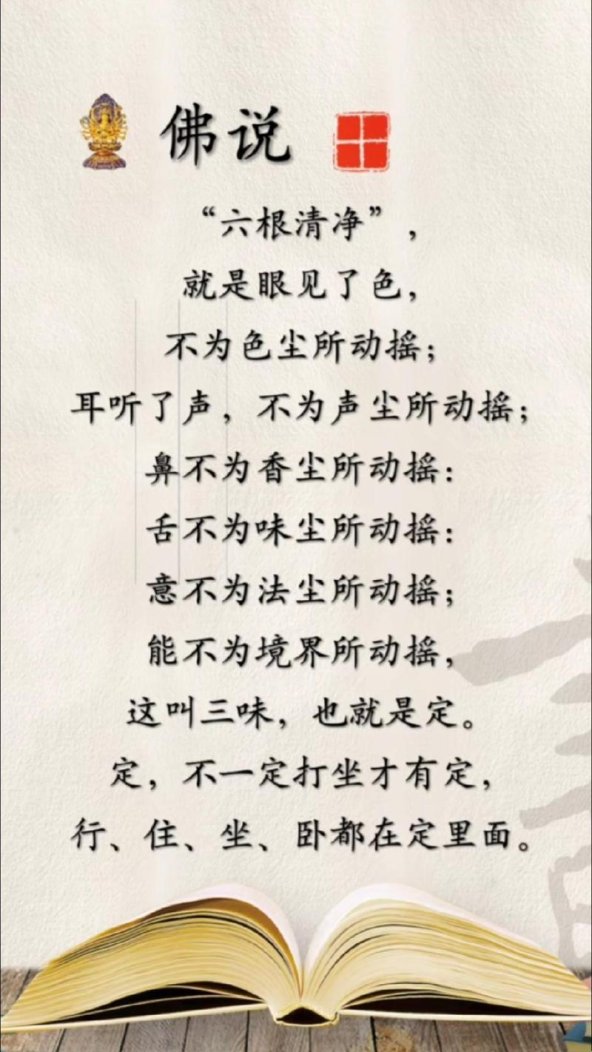 佛说
“六根清净”，
就是眼见了色，
不为色尘所动摇；
耳听了声，不为声尘所动摇；
鼻不为香尘所动摇：
舌不为味尘所动摇：
意不为法尘所动摇；
能不为境界所动摇，
这叫三味，也就是定。
定，不一定打坐才有定，
行、住、坐、卧都在定里面。